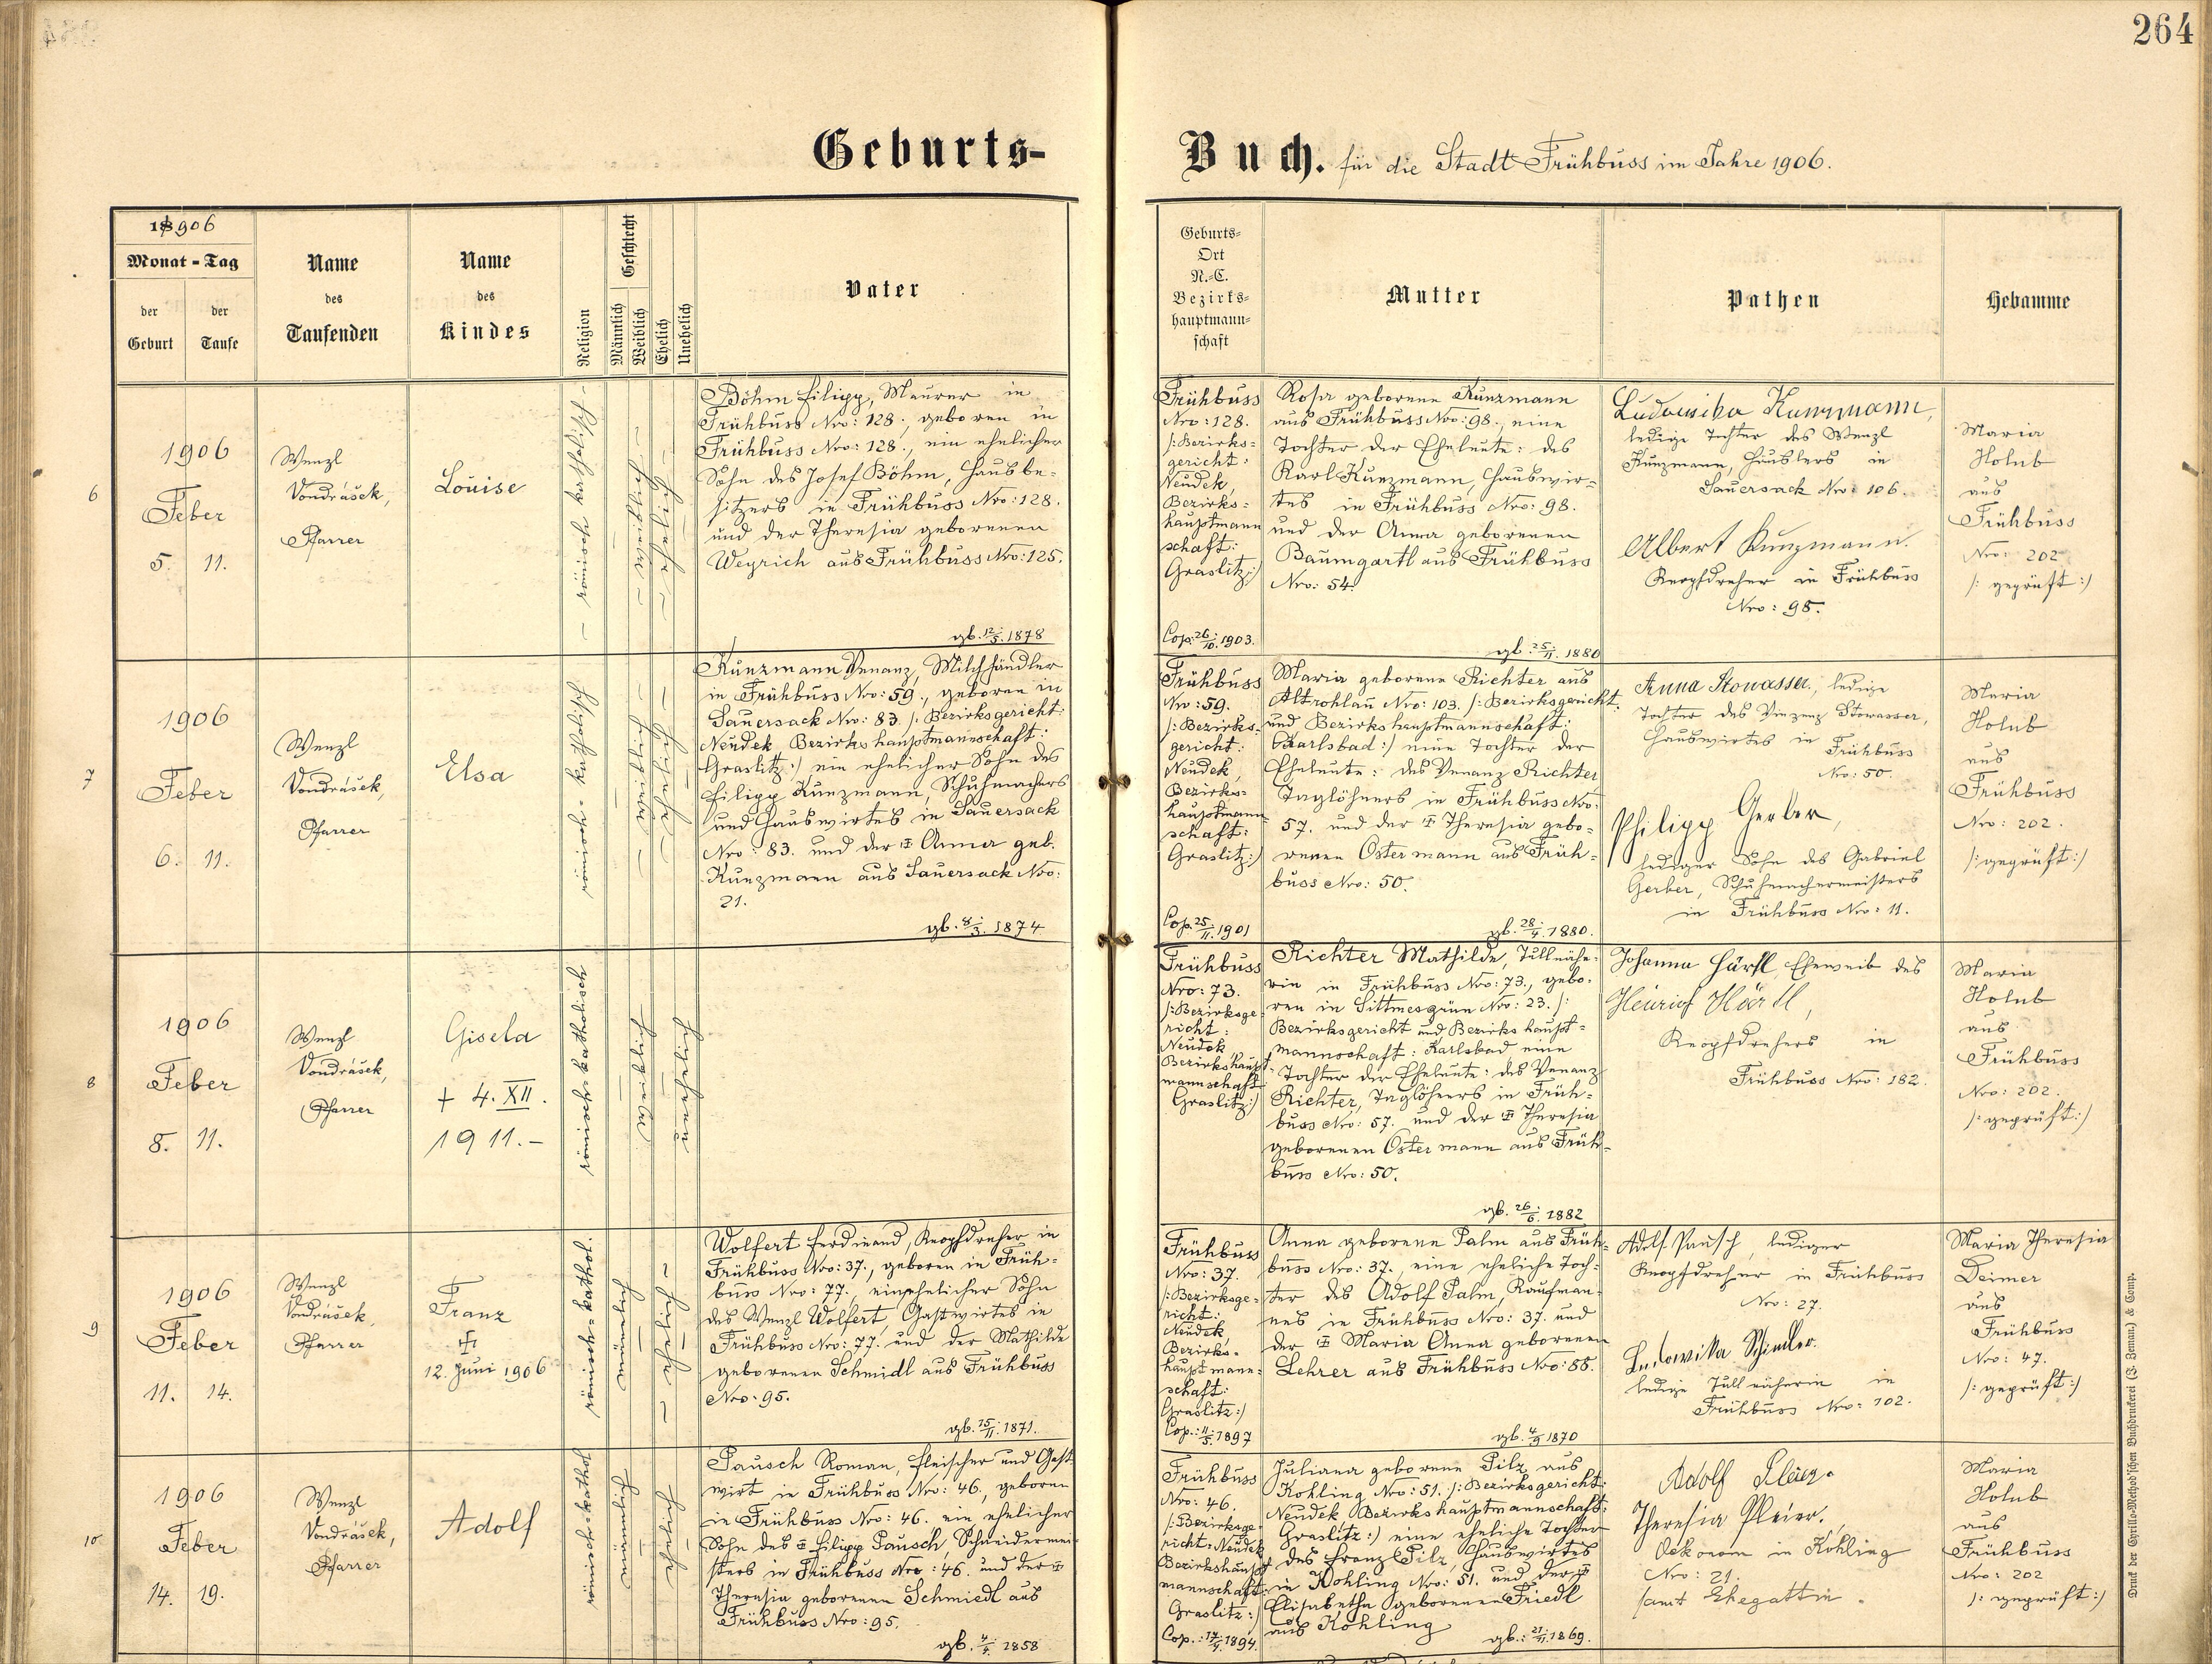 264
Geburts-
Buch. für die Stadt Frühbuss im Jahre 1906.
18906
Monat - Tag
der Geburt
der Taufe
Name des Taufenden
Name des Kindes
Religion
Geschlecht
Männlich
Weiblich
Ehelich
Unehelich
Vater
Geburts-
Ort
N.-C.
Bezirks-
hauptmann-
schaft
Mutter
Pathen
Hebamme
6
1906
Feber
5. 11.
Wenzl
Vondrášek,
Pfarrer
Louise
– römisch katholisch –
– weiblich –
– ehelich –
Böhm Filipp, Maurer in
Frühbuss Nro: 128., geboren in
Frühbuss Nro: 128., ein ehelicher
Sohn des Josef Böhm, Hausbe-
sitzers in Frühbuss Nro: 128.
und der Theresia geborenen
Weyrich aus Frühbuss Nro: 125.
gb. 12/5. 1878
Frühbuss
Nro: 128.
/: Bezirks-
gericht:
Neudek,
Bezirks-
hauptmann
schaft:
Graslitz:/
Cop. 26/10. 1903.
Rosa geborene Kunzmann
aus Frühbuss Nro: 98., eine
Tochter der Eheleute: des
Karl Kunzmann, Hauswir-
tes in Frühbuss Nro: 98.
und der Anna geborenen
Baumgartl aus Frühbuss
Nro: 54.
gb. 25/11. 1880
Ludowika Kunzmann,
ledige Tochter des Wenzl
Kunzmann, Häuslers in
Sauersack Nro: 106.
Albert Kunzmann.
Knopfdreher in Frühbuss
Nro: 98.
Maria
Holub
aus
Frühbuss
Nro: 202
/: geprüft:/
7
1906
Feber
6. 11.
Wenzl
Vondrášek,
Pfarrer
Elsa
römisch-katholisch
– weiblich –
– ehelich –
Kunzmann Venanz, Milchhändler
in Frühbuss Nro: 59., geboren in
Sauersack Nro: 83. /: Bezirksgericht:
Neudek, Bezirkshauptmannschaft:
Graslitz:/ ein ehelicher Sohn des
Filipp Kunzmann, Schuhmachers
und Hauswirtes in Sauersack
Nro: 83. und der ✝ Anna geb.
Kunzmann aus Sauersack Nro:
21.
gb. 8/3. 1874
Frühbuss
Nro: 59.
/: Bezirks-
gericht:
Neudek,
Bezirks-
hauptmann
schaft:
Graslitz:/
Cop. 25/11. 1901
Maria geborene Richter aus
Altrohlau Nro: 103. /: Bezirksgericht:
und Bezirkshauptmannschaft:
Karlsbad:/ eine Tochter der
Eheleute: des Venanz Richter
Taglöhners in Frühbuss Nro:
57. und der ✝ Theresia gebo-
renen Ostermann aus Früh-
buss Nro: 50.
gb. 28/4. 1880.
Anna Stowasser, ledige
Tochter des Vinzenz Stowasser,
Hauswirtes in
Frühbuss
No: 50.
Philipp Gerber,
lediger Sohn des Gabriel
Gerber, Schuhmachermeisters
in Frühbuss Nro: 11.
Maria
Holub
aus
Frühbuss
Nro: 202.
/: geprüft:/
8
1906
Feber
8. 11.
Wenzl
Vondrášek,
Pfarrer
Gisela
+ 4. XII.
1911.–
römisch-katholisch
weiblich
unehelich
Frühbuss
Nro: 73.
/: Bezirksge-
richt:
Neudek,
Bezirkshaupt-
mannschaft
Graslitz:/
Richter Mathilde, Tüllnähe-
rin in Frühbuss Nro: 73., gebo-
ren in Sittmesgrün Nro: 23. /:
Bezirksgericht und Bezirkshaupt-
mannschaft: Karlsbad, eine
Tochter der Eheleute: des Venanz
Richter, Taglöhners in Früh-
buss Nro: 57. und der ✝ Theresia
geborenen Ostermann aus Früh-
buss Nro: 50.
gb. 26/6. 1882
Johanna Härtl, Eheweib des
Heinrich Härtl,
Knopfdrehers in
Frühbuss Nro: 182.
Maria
Holub
aus
Frühbuss
Nro: 202.
/: geprüft:/
9
1906
Feber
11. 14.
Wenzl
Vondrášek,
Pfarrer
Franz
✝
12. Juni 1906
römisch-kathol.
männlich
– ehelich –
Wolfert Ferdinand, Knopfdreher in
Frühbuss Nro: 37., geboren in Früh-
buss Nro: 77., ein ehelicher Sohn
des Wenzl Wolfert, Gastwirtes in
Frühbuss Nro: 77. und der Mathilde
geborenen Schmidl aus Frühbuss
Nro: 95.
gb. 15/11. 1871.
Frühbuss
Nro: 37.
/: Bezirksge-
richt.
Neudek,
Bezirks-
hauptmann-
schaft:
Graslitz:/
Cop.: 11/5. 1897
Anna geborene Palm aus Früh-
buss Nro: 37., eine eheliche Toch-
ter des Adolf Palm, Kaufman-
nes in Frühbuss Nro: 37. und
der ✝ Maria Anna geborenen
Lehrer aus Frühbuss Nro: 88.
gb. 4/9 1870
Adolf Pausch, lediger
Knopfdreher in Frühbuss
Nro: 27.
Ludowika Schindler.
ledige Tüllnäherin in
Frühbuss Nro: 102.
Maria Theresia
Deimer
aus
Frühbuss
Nro: 47.
/: geprüft:/
10
1906
Feber
14. 19.
Wenzl
Vondrášek,
Pfarrer
Adolf
römisch-kathol
männlich
ehelich
Pausch Roman, Fleischer und Gast-
wirt in Frühbuss Nro: 46., geboren
in Frühbuss Nro: 46. ein ehelicher
Sohn des ✝ Filipp Pausch, Schneidermei-
sters in Frühbuss Nro: 46. und der ✝
Theresia geborenen Schmiedl aus
Frühbuss Nro: 95.
gb. 4/4. 1858
Frühbuss
Nro: 46.
/: Bezirksge-
richt: Neudek
Bezirkshaupt
mannschaft:
Graslitz:/
Cop.: 17/4. 1894.
Juliana geborene Pilz aus
Kohling Nro: 51. /: Bezirksgericht:
Neudek Bezirkshauptmannschaft:
Graslitz:/ eine eheliche Tochter
des Franz Pilz, Hauswirtes
in Kohling Nro: 51. und der ✝
Elisabetha geborenen Friedl
aus Kohling
gb.: 21/11. 1869.
Adolf Pleier.
Theresia Pleier.
Oekonom in Kohling
Nro: 21.
samt Ehegattin.
Maria
Holub
aus
Frühbuss
Nro: 202
/: geprüft:/
Druck der Cyrillo-Method'schen Buchdruckerei (J. Zeman.) & Comp.